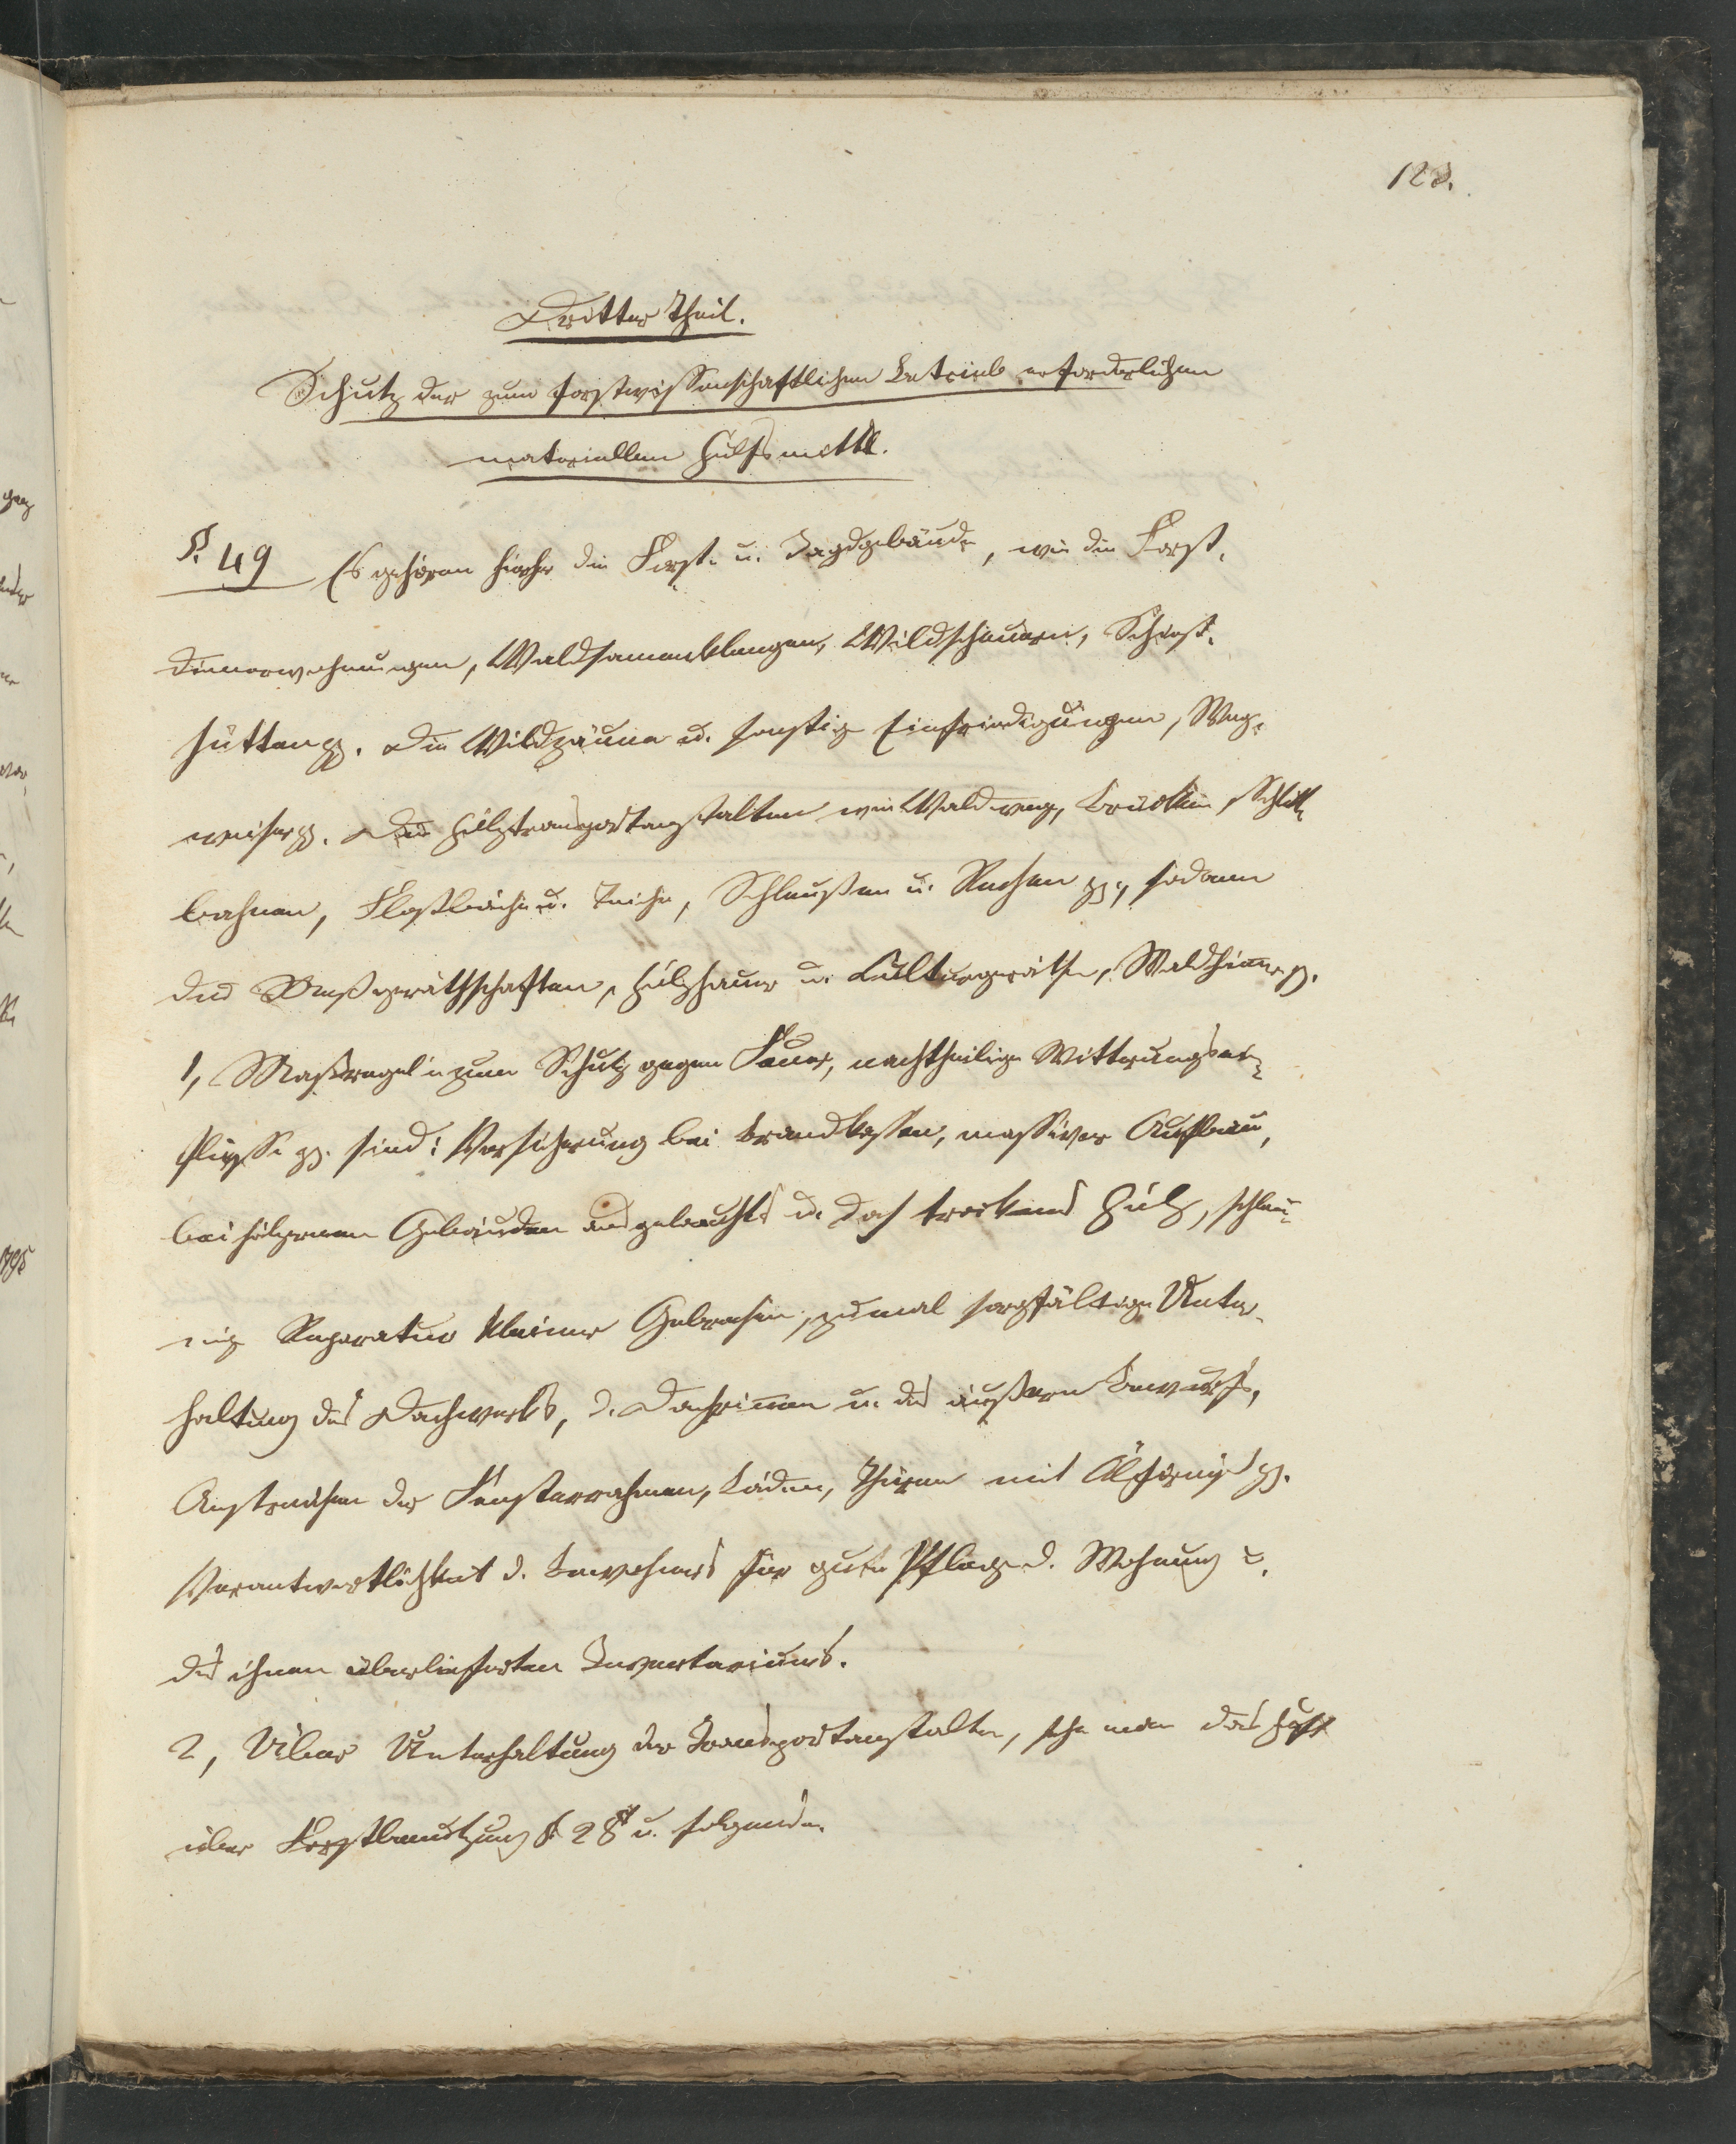 123.
Dritter Theil.
Schutz der zum forstwissenschaftlichen Betrieb erforderlichen
materiellen Hülfsmittel.
§. 49 Es gehören hierher die Forst- u. Jagdgebäude, wie die Forst-
dienerwohnungen, Waldsamenklengen, Wildscheuern, Schieß-
hütten pp. die Wildzäune u. sonstige Einfriedigungen, Weg-
weiser pp. Die Holztransportanstalten wie Waldwege, Brücken, Schlitt-
bahnen, Floßbäche u. Teiche, Schleußen u. Rechen pp., sodann
die Meßgeräthschaften, Holzhauer u. Culturgeräthe, Waldhämer p.
1, Maßregeln zum Schutz gegen Feuer, nachtheilige Witterungsein-
flüsse pp. sind: Versicherung bei Brandkassen, massiver Aufbau,
bei hölzernen Gebäuden ausgelauchtes u. doch trockenes Holz, schleu-
nige Reparatur kleiner Gebrechen, zumal sorgfältige Unter-
haltung des Dachwerks, d. Dachrinnen u. des äußern Bewurfs,
Anstreichen der Fensterrahmen, Läden, Thüren mit Ölfirniß pp.
Verantwortlichkeit d. Bewohners für gute Pflege d. Wohnung u.
des ihnen überlieferten Inventariums.
2, Über Unterhaltung der Transportanstalten, sehe man das Heft
über Forstbenutzung § 28 u. folgende.